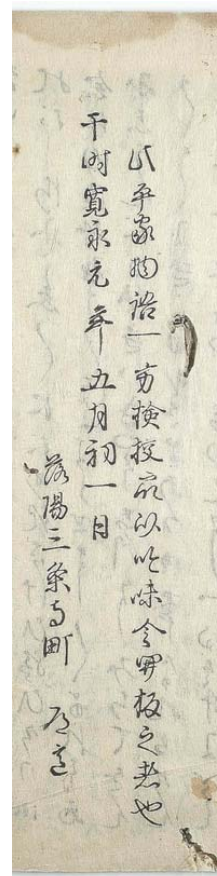 此平家物語一方検校衆以吟味令開板之者也
于时寛永元年五月初一日
落陽三条寺町